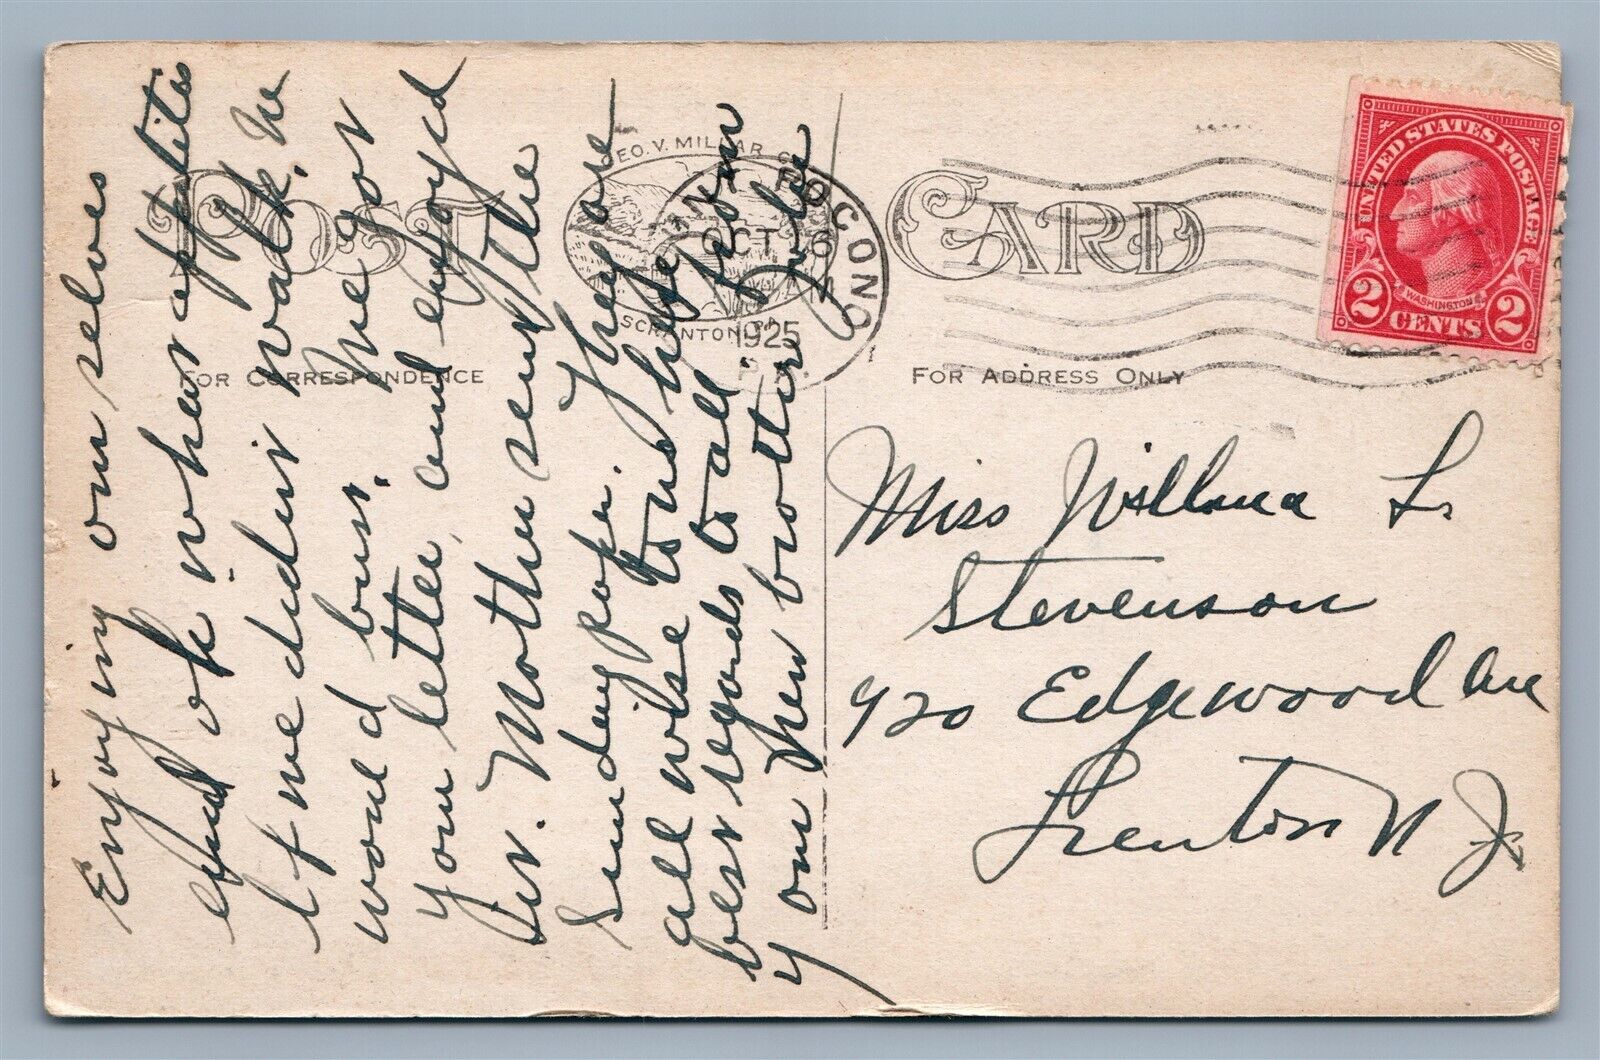 POST CARD
GEO. V. MILLAR
SCRANTON, PA.
POCONO
OCT 6
1925
FOR CORRESPONDENCE
FOR ADDRESS ONLY
UNITED STATES POSTAGE
WASHINGTON
2 CENTS 2
Enjoying our selves
and oh what appetites
If we didn't walk. We
would bust. We got
your letter, and enjoyed
it. Mother sent the
Sunday paper. They are
all wise to us here
best regards to all from
your new brother
Miss Willma L.
Stevenson
920 Edgewood Ave
Trenton N J.